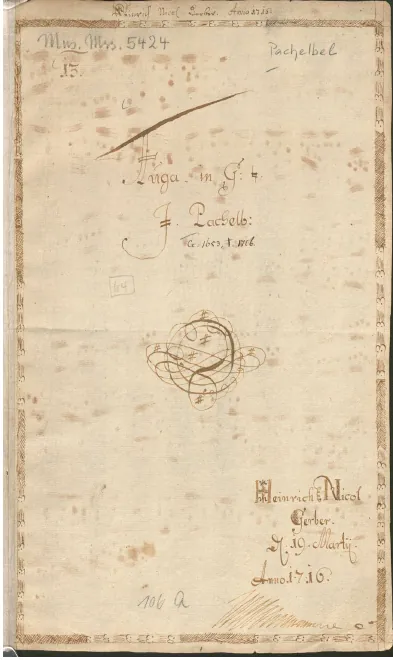 Heinrich Nicol Gerber. Anno 1716.
Mus. Mss. 5424
Pachelbel
13.
Fuga in G: ♮.
J. Pachelb:
1653, † 1706.
Heinrich Nicol
Gerber.
19. Martij.
Anno. 1716.
106 a